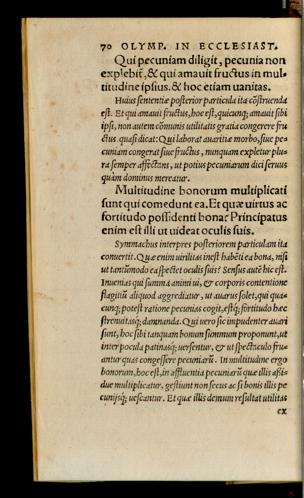 70 OLYMP. IN ECCLESIAST.
Qui pecuniam diligit, pecunia non
explebit̃, & qui amauit fructus in mul-
titudine ipsius. & hoc etiam uanitas.
Huius sententiæ posterior particula ita cõstruenda
est. Et qui amauit fructus, hoc est, quicunq; amauit sibi
ipsi, non autem cõmunis utilitatis gratia congerere fru
ctus. quasi dicat: Qui laborat auaritiæ morbo, siue pe-
cuniam congerat siue fructus, nunquam expletur plu-
ra semper affectans, ut potius pecuniarum dici seruus
quàm dominus mereatur.
Multitudine bonorum multiplicati
sunt qui comedunt ea. Et quæ uirtus ac
fortitudo possidenti bona? Principatus
enim est illi ut uideat oculis suis.
Symmachus interpres posteriorem particulam ita
conuertit. Quæ enim uirilitas inest habẽti ea bona, nisi
ut tantũmodo ea spectet oculis suis? Sensus autẽ hic est.
Inuenias qui summa animi ui, & corporis contentione
flagitiũ aliquod aggrediatur, ut auarus solet, qui quas-
cunq; potest ratione pecunias cogit, estq; fortitudo hæc
strenuitasq; damnanda. Qui uero sic impudenter auari
sunt, hoc sibi tanquam bonum summum proponunt, ut
inter pocula patinasq; uersentur, & ut spectaculo fru-
antur quas congessere pecuniarũ. In multitudine ergo
bonorum, hoc est, in affluentia pecuniarũ quæ illis assi-
due multiplicatur, gestiunt non secus ac si bonis illis pe
cunijsq; uescantur. Et quæ illis demum resultat utilitas
ex